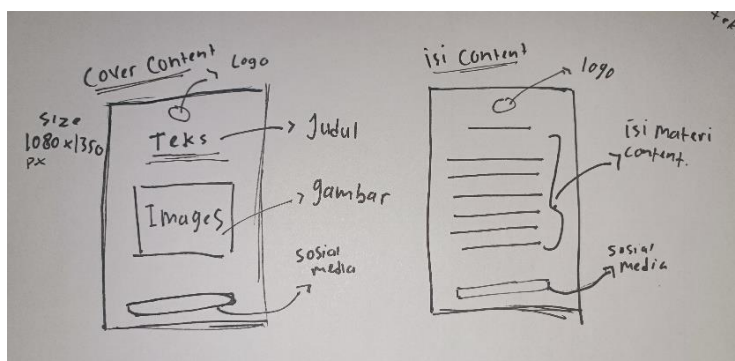 Cover Content
Logo
Size
1080 x 1350
px
Teks
Judul
Images
gambar
sosial
media
isi Content
logo
isi materi
content.
sosial
media